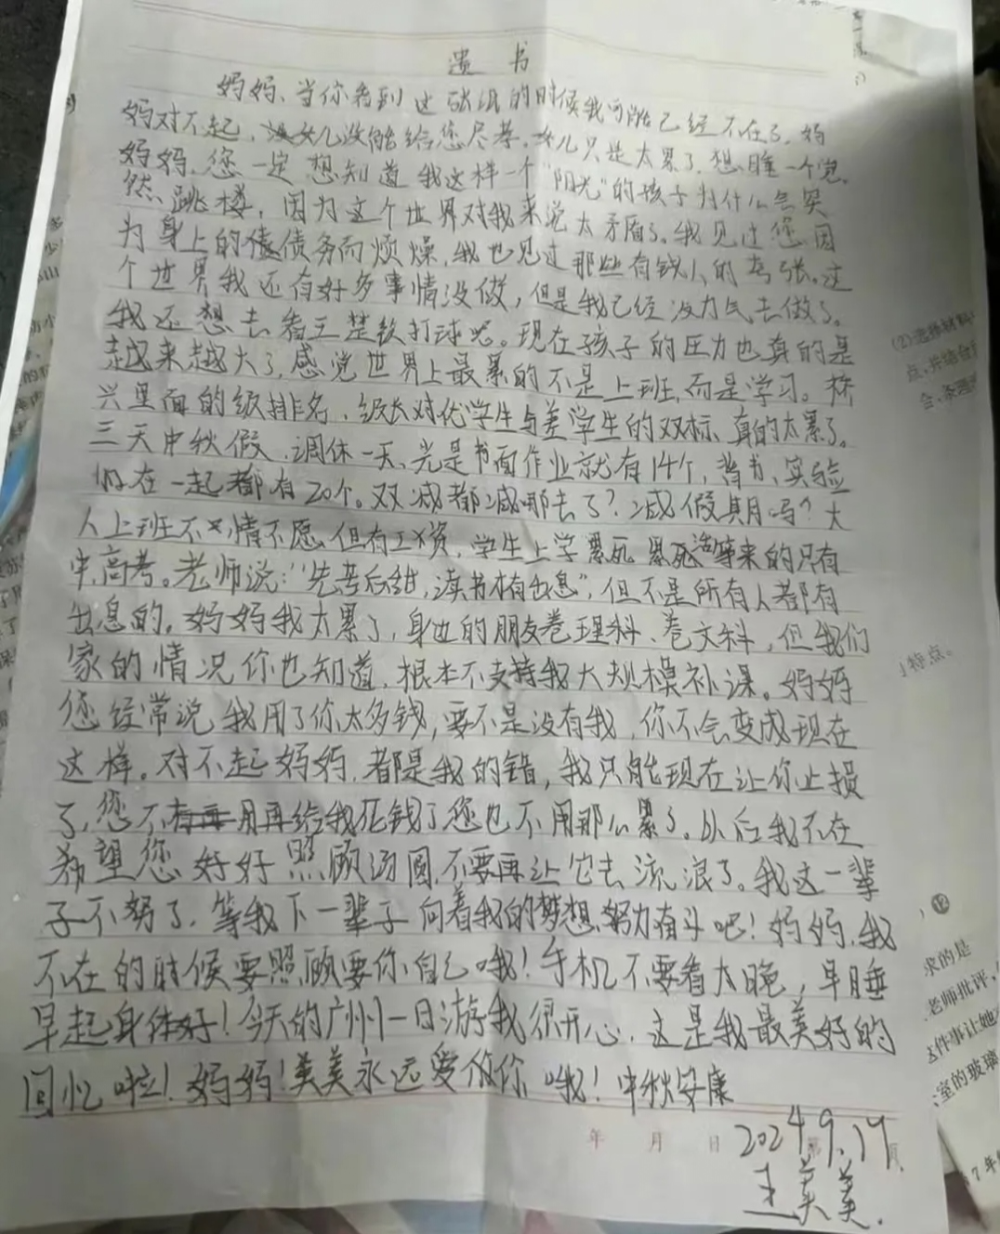 遗书
妈妈、当你看到这张纸的时候我可能已经不在了，妈
妈对不起，女儿没能给您尽孝，女儿只是太累了，想睡一个觉。
妈妈，您一定想知道我这样一个"阳光"的孩子为什么会突
然跳楼，因为这个世界对我来说太矛盾了。我见过您因
为身上的债务而烦燥，我也见过那些有钱人的夸张。这
个世界我还有好多事情没做，但是我已经没力气去做了。
我还想去看王楚钦打球呢。现在孩子的压力也真的是
越来越大了，感觉世界上最累的不是上班，而是学习。桥
兴里面的级排名、级长对优学生与差学生的双标、真的太累了。
三天中秋假，调休一天、光是书面作业就有14个，背书、实验
加在一起都有20个。双减都减哪去了？减假期吗？大
人上班不情不愿，但有工资，学生上学累死累活等来的只有
中高考。老师说："先苦后甜，读书才有出息"，但不是所有人都有
出息的。妈妈我太累了，身边的朋友卷理科、卷文科，但我们
家的情况你也知道，根本不支持我大规模补课。妈妈
您经常说我用了你太多钱，要不是没有我，你不会变成现在
这样。对不起妈妈，都是我的错，我只能现在让你止损
了，您不用再给我花钱了您也不用那么累了。以后我不在
希望您好好照顾汤圆，不要再让它去流浪了。我这一辈
子不努了，等我下一辈子向着我的梦想努力奋斗吧！妈妈，我
不在的时候要照顾要你自己哦！手机不要看太晚，早睡
早起身体好！今天的广州一日游我很开心，这是我最美好的
回忆啦！妈妈！美美永远爱你哦！中秋安康
年 月 日 第 页
2024.9.17
王美美.
(2)选择材料
点，并结合
合、条理
特点。
求的是
老师批评，
这件事让她
室的玻璃